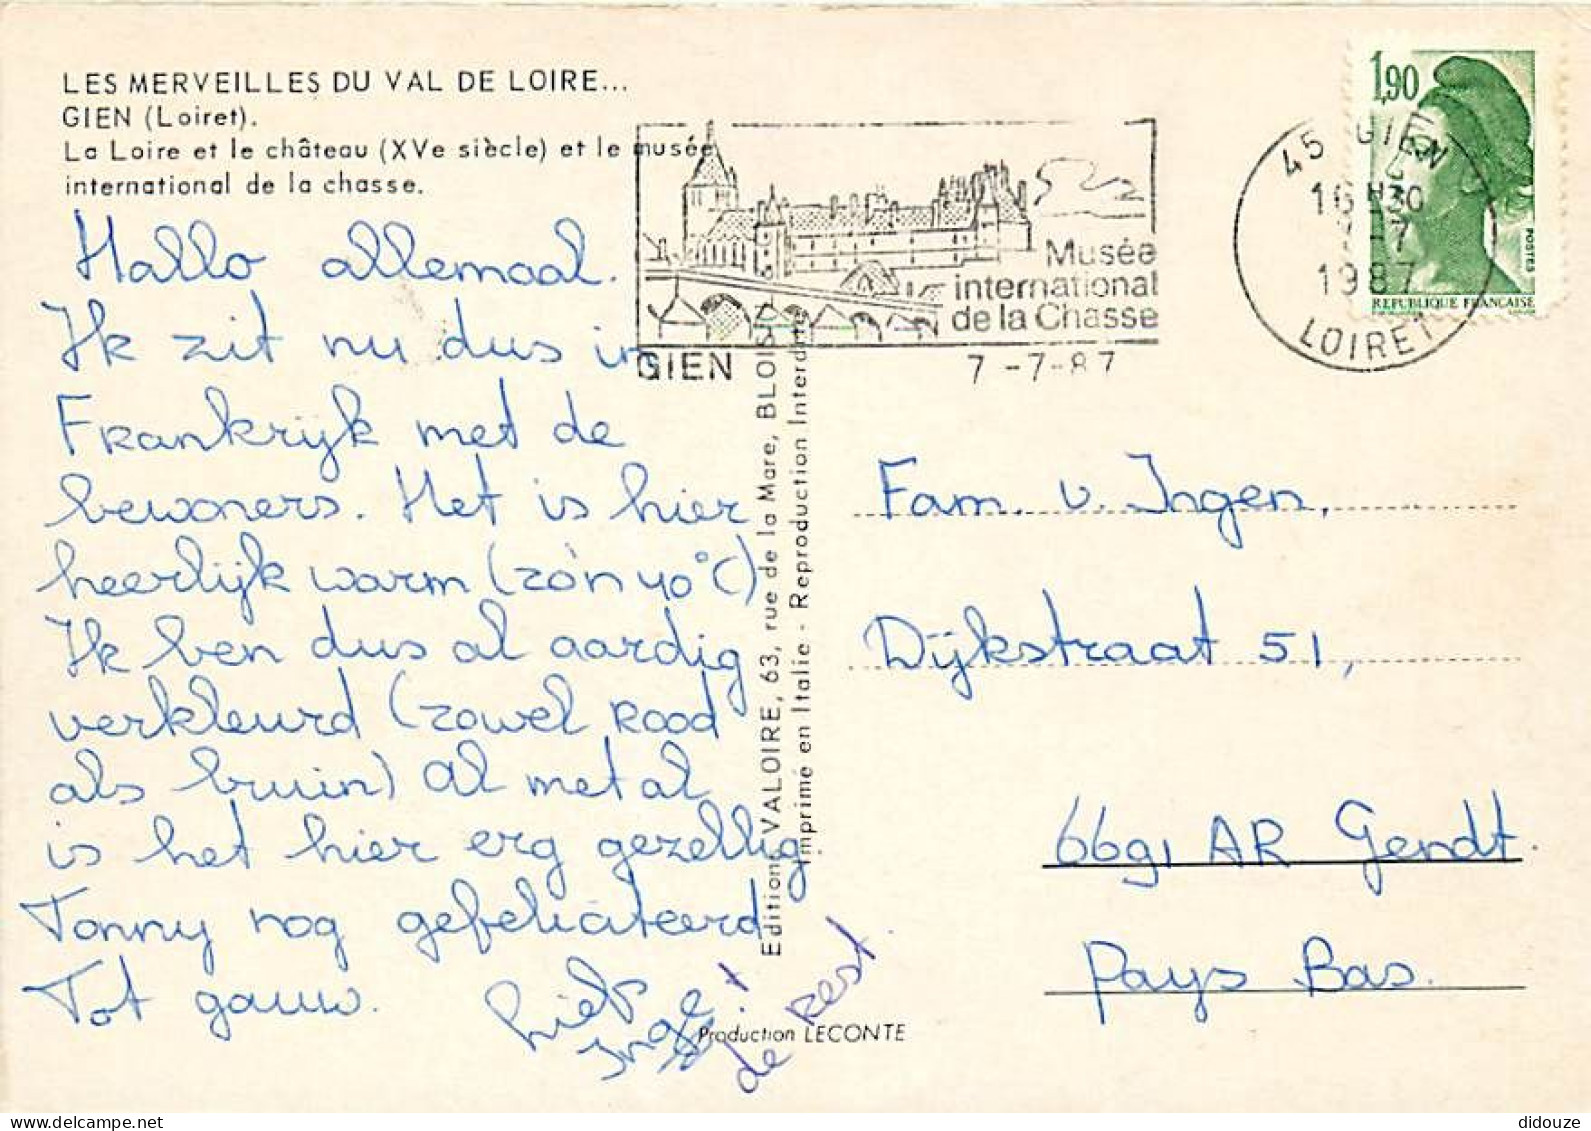 LES MERVEILLES DU VAL DE LOIRE...
GIEN (Loiret).
La Loire et le château (XVe siècle) et le musée
international de la chasse.
Hallo allemaal.
Ik zit nu dus in
Frankrijk met de
bewoners. Het is hier
heerlijk warm (zo'n 40°C)
Ik ben dus al aardig
verkleurd (zowel rood
als bruin) Al met al
is het hier erg gezellig
Tonny nog gefeliciteerd
Tot gauw.
liefs
Inge +
de rest.
Musée
international
de la Chasse
GIEN
7-7-87
45 GIEN
16H30
7-7
1987
LOIRET
1,90
POSTES
REPUBLIQUE FRANÇAISE
Editions VALOIRE, 63, rue de la Mare, BLOIS
Imprimé en Italie - Reproduction Interdite
Fam. v. Ingen,
Dijkstraat 51,
6691 AR Gendt.
Pays Bas.
Production LECONTE
delcampe.net
didouze